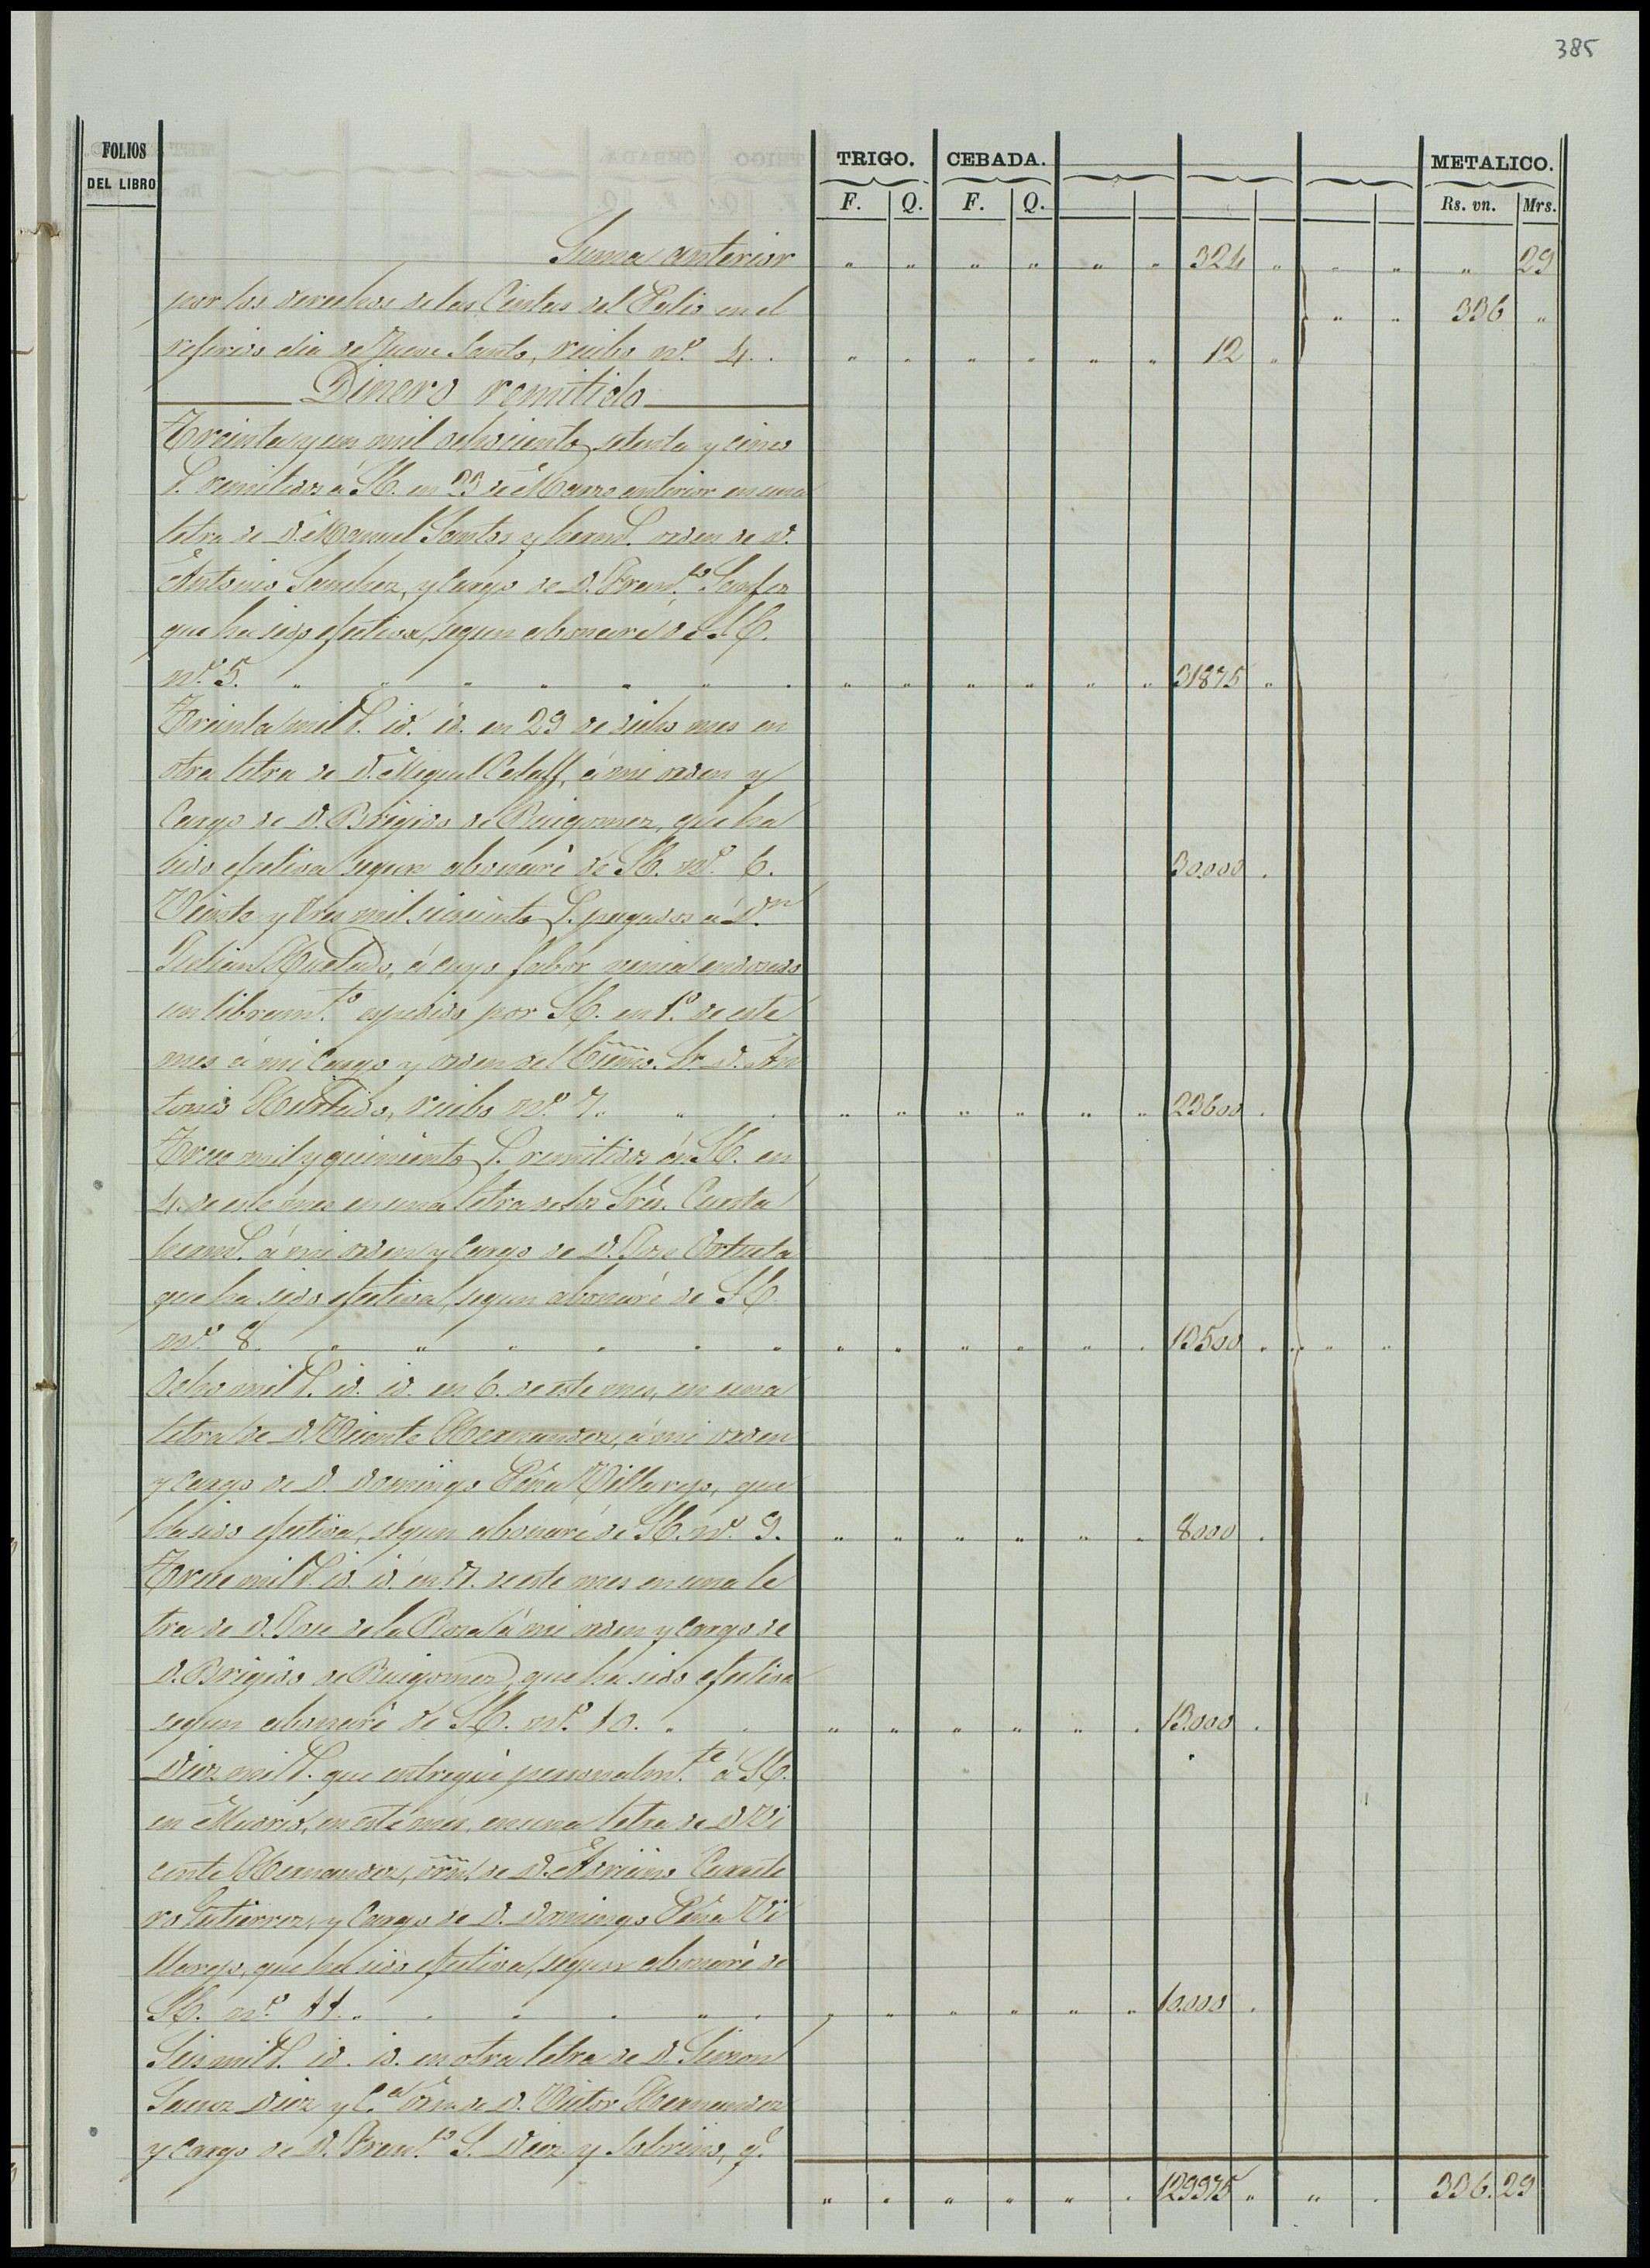 385
FOLIOS DEL LIBRO
TRIGO. CEBADA. METALICO.
F. Q. F. Q. Rs. vn. Mrs.
Suma anterior " " " " " " 324 " " " " 29
por los derechos de las Cintas del Palio en el " " 336 "
referido dia de Jueves Santo, recibo nº 4. " " " " " " 12 "
Dinero remitido
Treinta y un mil ochocientos setenta y cinco
r. remitidos á S.E. en 23 de Marzo anterior en una
letra de D. Manuel Santos y herm. orden de D.
Antonio Sanchez, y cargo de D. Fran.co
que ha sido efectiva, segun abonaré de S.E.
nº 5. " " " " " " " " " " " " " 31875 "
Treinta mil r. id. id. en 29 de dicho mes en
otra letra de D. Miguel Calaff, á mi orden y
Cargo de D. Brigido de Ruigomez, que ha
sido efectiva segun abonaré de S.E. nº 6. 30.000 .
Veinte y tres mil seiscientos r. pagados á D.n
Julian Hurtado, á cuyo fabor venia endosado
un libram.to espedido por S.E. en 1º de este
mes á mi cargo y orden del Exmo. Sr. D. An
tonio Hurtado, recibo nº 7. " " " " " " " " 23600 .
Trece mil y quinientos r. remitidos á S.E. en
4. de este mes en una letra de los Sres. Cuesta
herm. á mi orden y cargo de D. Jose Ortueta
que ha sido efectiva, segun abonaré de S.E.
nº 8. " " " " " " " " " " " " 13500 . . " "
Ocho mil r. id. id. en 6. de este mes, en una
letra de D. Vicente Hernandez, á mi orden
y cargo de D. Domingo Peña Villarejo, que
ha sido efectiva, segun abonaré de S.E. nº 9. " " " " " " 8000 .
Trece mil r. id. id. en 7. de este mes en una le
tra de D. Jose de la Rosa á mi orden y cargo de
D. Brigido de Ruigomez, que ha sido efectiva
segun abonaré de S.E. nº 10. " " " " " " " " 13.000 .
Diez mil r. que entregué personalm.te á S.E.
en Madrid, en este mes, en una letra de D. Vi
cente Hernandez, orn. de D. Cuarte
ro Gutierrez, y Cargo de D. Domingo Peña Vi
llarejo, que ha sido efectiva, segun abonaré de
S.E. nº 11. " " " " " " " " " " " 10.000 .
Seis mil r. id. id. en otra letra de D. Simon
Saenz Diez y C.a orn. de D. Victor Hernandez
y cargo de D. Fran.co S. Diez y Sobrino, q.e
" " " " " " 129975 " " " 336. 29